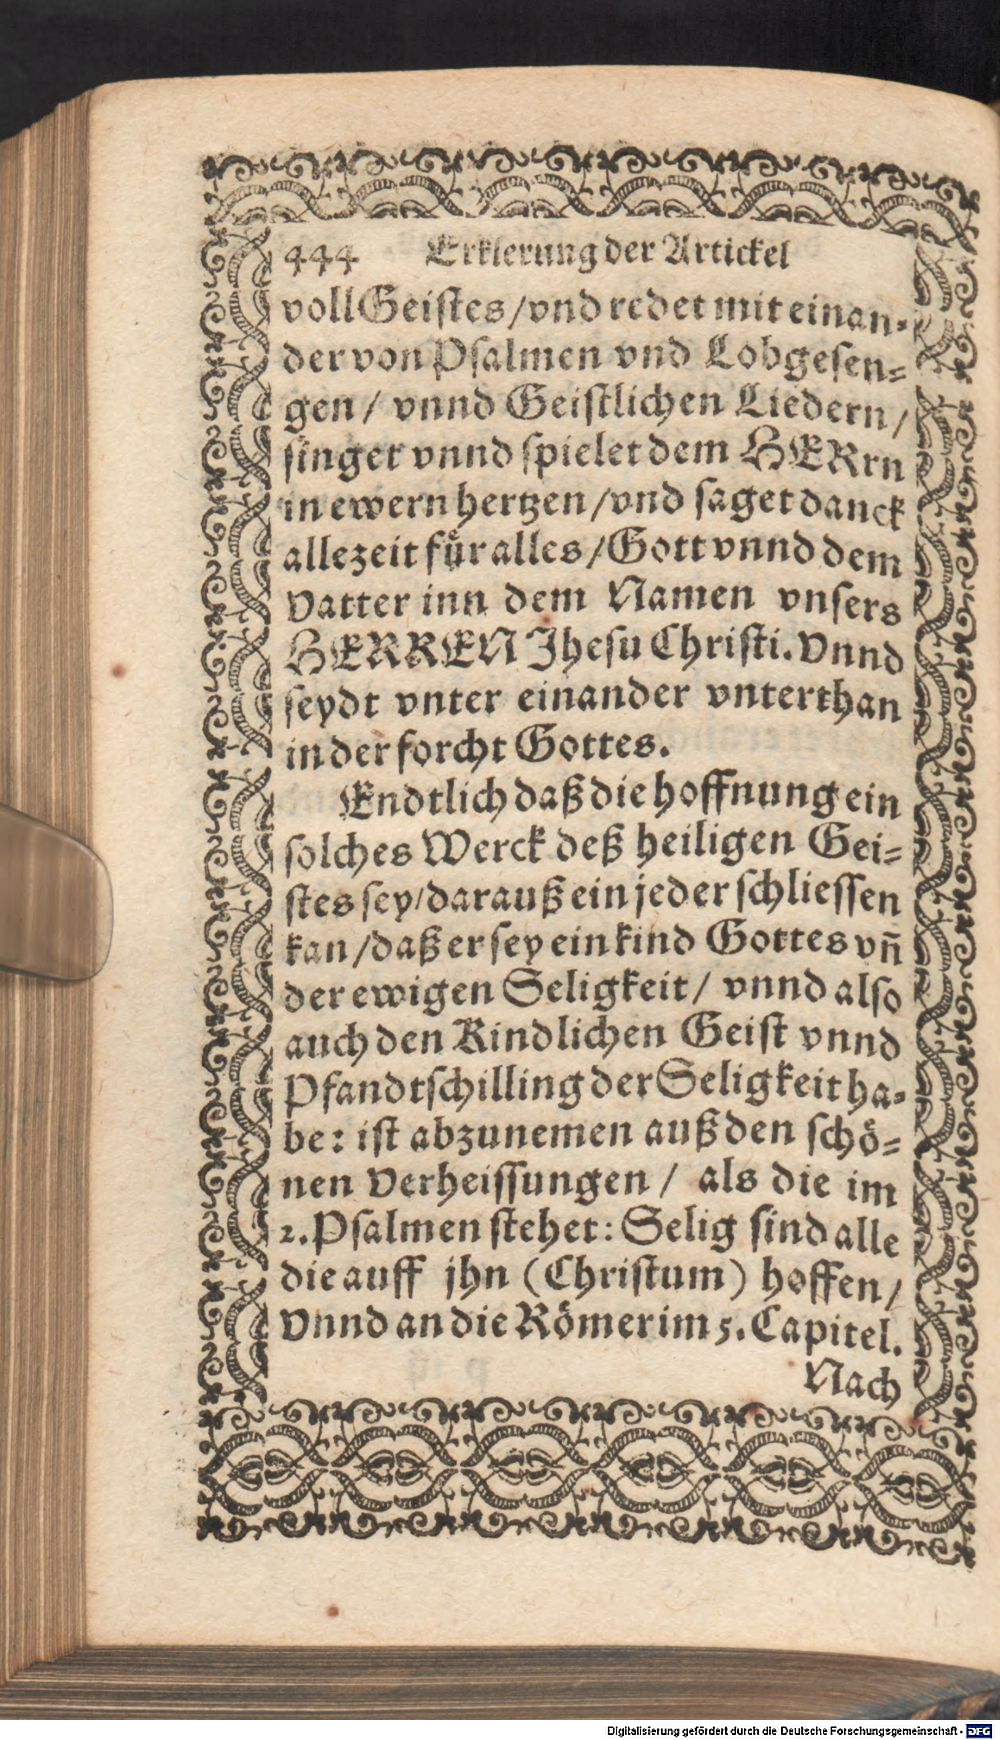 444 Erklerung der Artickel
voll Geistes/vnd redet mit einan-
der von Psalmen vnd Lobgesen-
gen/ vnnd Geistlichen Liedern/
singet vnnd spielet dem HERrn
in ewern hertzen/vnd saget danck
allezeit für alles/Gott vnnd dem
Vatter inn dem Namen vnsers
HERREN Jhesu Christi. Vnnd
seydt vnter einander vnterthan
in der forcht Gottes.
Endtlich daß die hoffnung ein
solches Werck deß heiligen Gei-
stes sey/darauß ein jeder schliessen
kan/daß er sey ein kind Gottes vn̄
der ewigen Seligkeit/ vnnd also
auch den Kindlichen Geist vnnd
Pfandtschilling der Seligkeit ha-
be: ist abzunemen auß den schö-
nen Verheissungen/ als die im
2. Psalmen stehet: Selig sind alle
die auff jhn (Christum) hoffen/
Vnnd an die Römer im 5. Capitel.
Nach
Digitalisierung gefördert durch die Deutsche Forschungsgemeinschaft - DFG